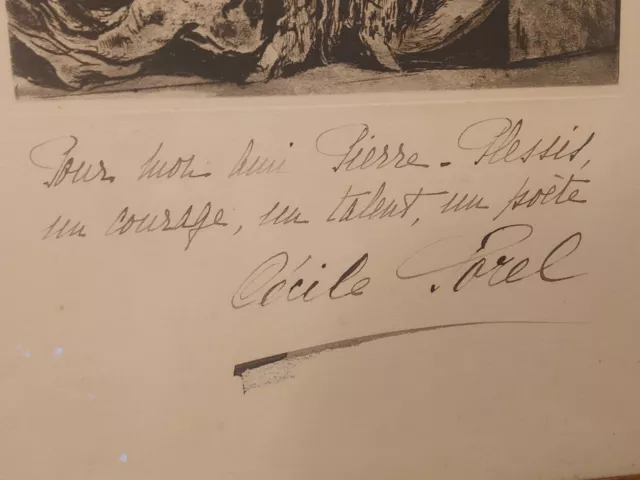 Pour mon ami Pierre-Plessis,
un courage, un talent, un poète
Cécile Sorel